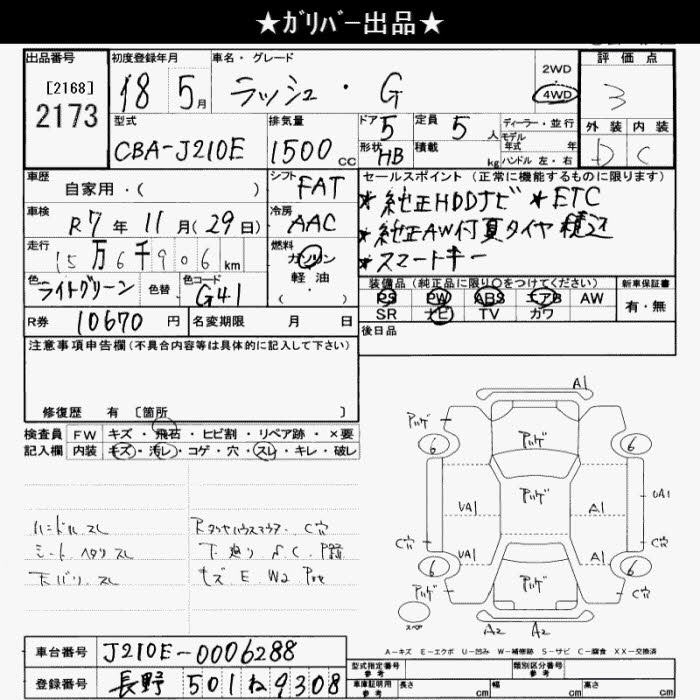 ★ガリバー出品★
出品番号 初度登録年月 車名・グレード 評価点
[2168] 18 5月 ラッシュ・G 2WD 4WD 3
2173
型式 排気量 ドア 定員 ディーラー・並行 外装 内装
CBA-J210E 1500cc 5 5人 モデル年式 年 D C
形状 HB 積載 kg ハンドル 左・右
車歴 シフト セールスポイント (正常に機能するものに限ります)
自家用・( ) FAT ＊純正HDDナビ ＊ETC
車検 冷房
R7年11月(29日) AAC ＊純正AW付夏タイヤ積込
走行 燃料
15万6千906km ガソリン ＊スマートキー
色 色替 色コード 軽・油
ライトグリーン G41 ( ・ ) 装備品(純正品に限り○をつけてください) 新車保証書
PS PW ABS エアB AW 有・無
R券 10670円 名変期限 月 日 SR ナビ TV カワ
注意事項申告欄(不具合内容等は具体的に記入して下さい) 後日品
修復歴 有 〔箇所 〕
検査員 FW キズ・飛石・ヒビ割・リペア跡・×要
記入欄 内装 キズ・汚レ・コゲ・穴・スレ・キレ・破レ
A1
アハゲ アハゲ
6 6
アハゲ
UA1 A1 UA1
C穴 C穴
UA1 A1
6 6
アハゲ アハゲ C穴
スペア A2 A2
ハンドル スレ Rタイヤハウスマウア. C穴
シート ヘタリ スレ 下廻り S.C.
天バリ スレ キズ E W2
A-キズ E-エクボ U-凹み W-補修跡 S-サビ C-腐食 XX-交換済
車台番号 J210E-0006288
型式指定番号 参考 類別区分番号 参考
登録番号 長野 501 ね 9308
車庫証明用 参考 長さ cm 幅 cm 高さ cm